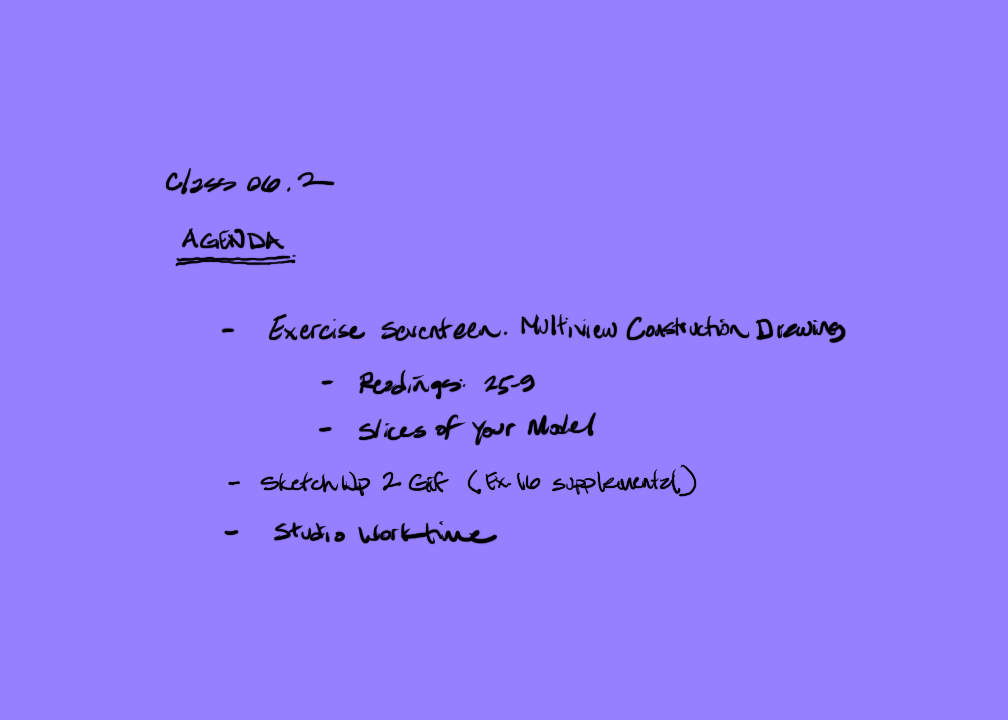 Class 06.2
AGENDA
- Exercise Seventeen. Multiview Construction Drawing
- Readings: 25-9
- Slices of Your Model
- SketchUp 2 Gif (Ex. 16 supplemental)
- Studio Worktime